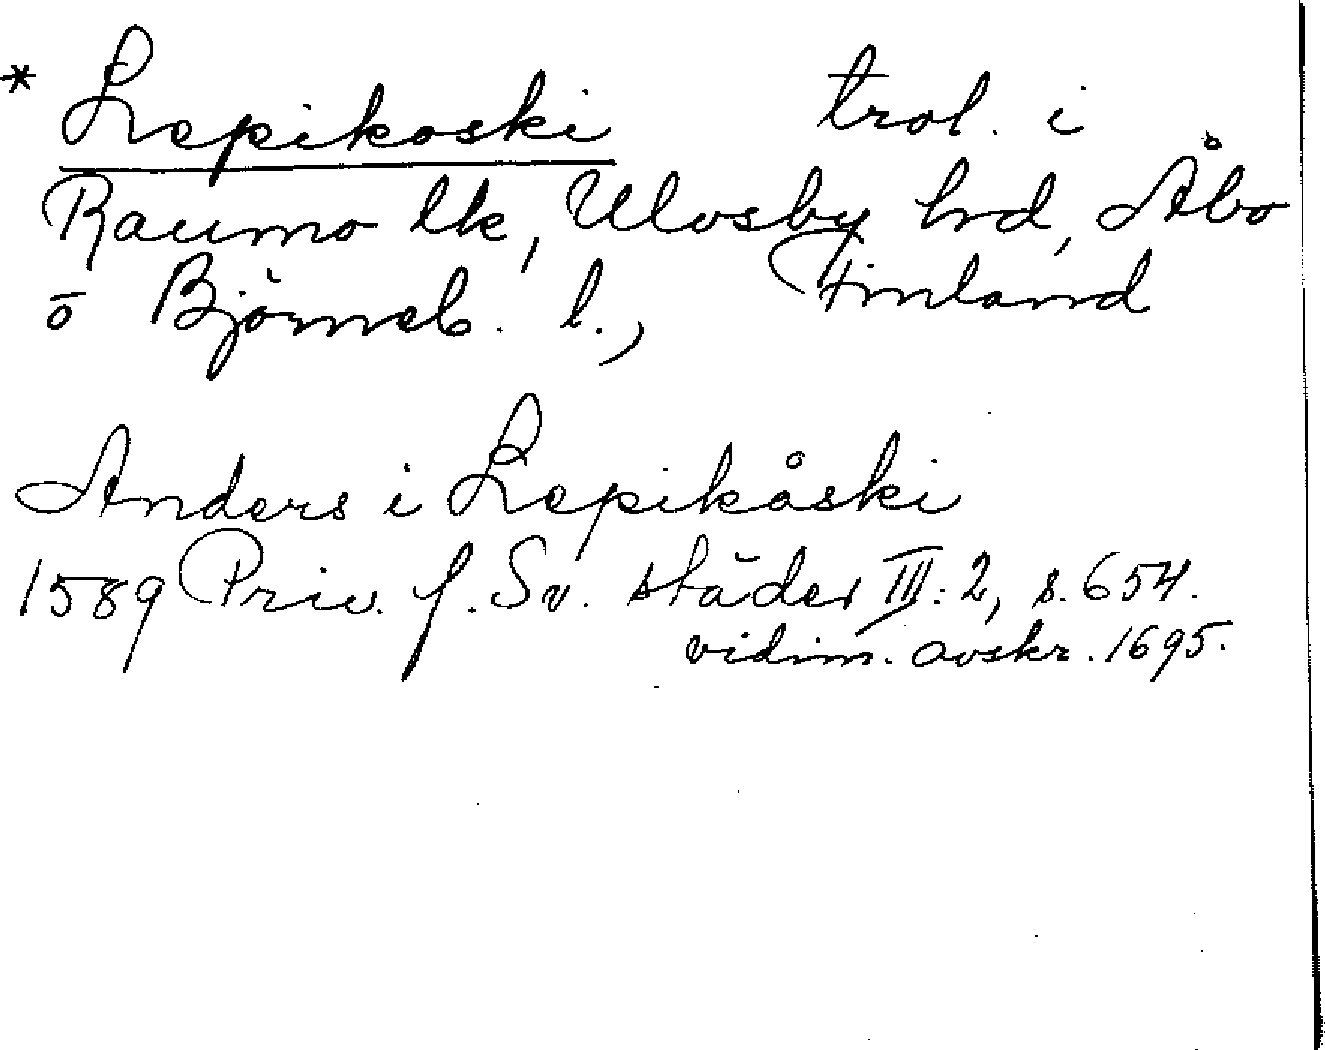 * Lepikoski trol. i
Raumo lk, Ulvsby hrd, Åbo
o Björneb. l., Finland
Anders i Lepikåski
1589 Priv. f. Sv. städer III:2, s. 654.
vidim. avskr. 1695.